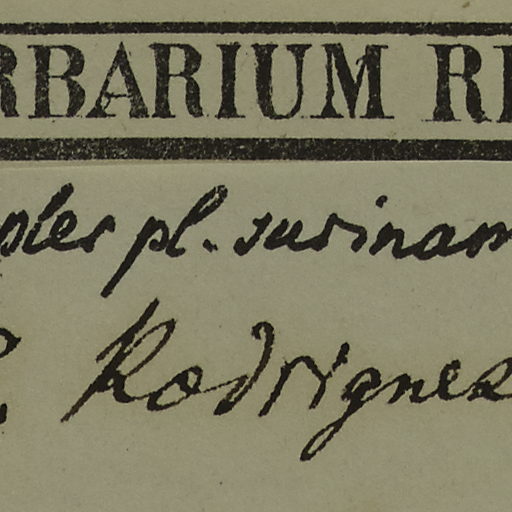 RBARIUM RE
ples pl. surinam
Rodrigues